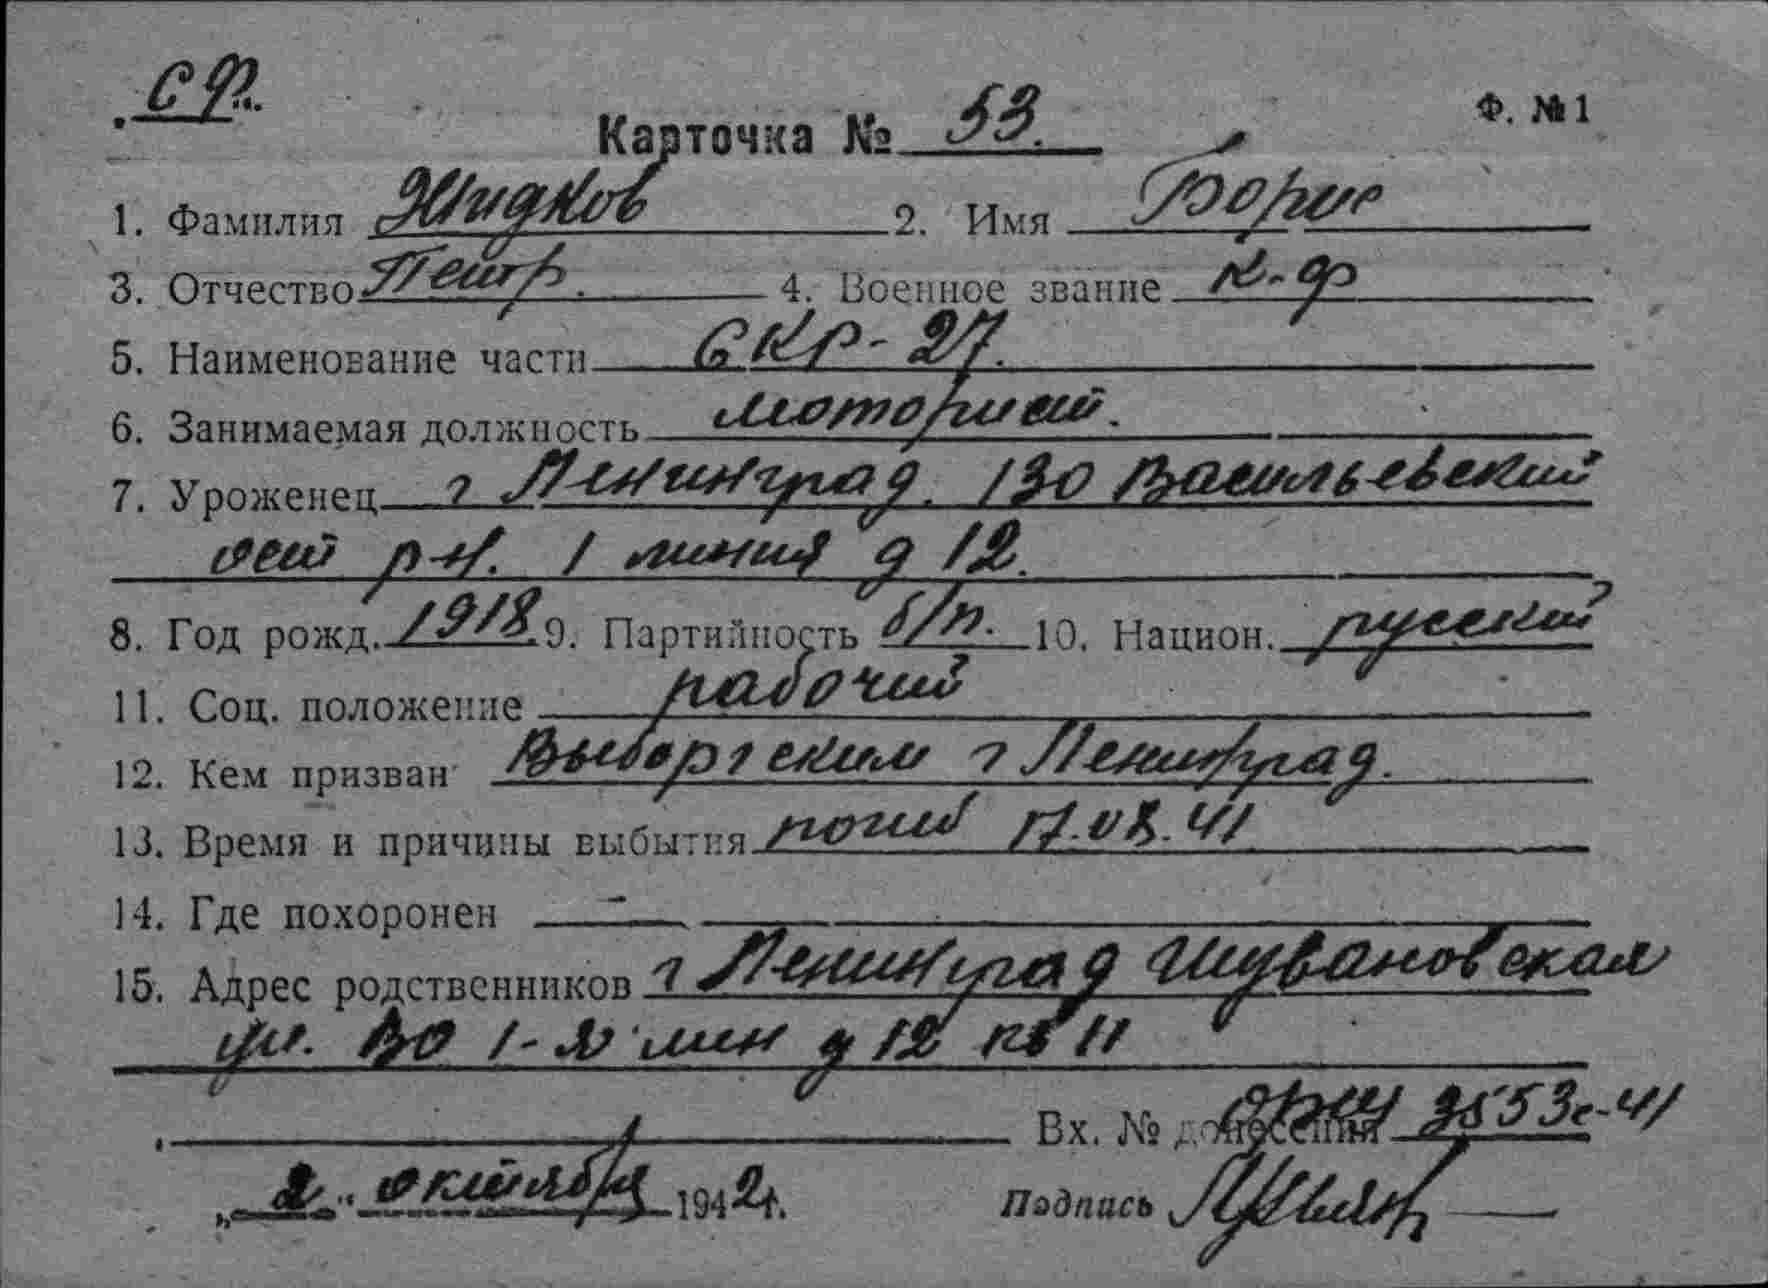 СФ.
Ф. №1
Карточка № 53.
1. Фамилия Жидков 2. Имя Борис
3. Отчество Петр. 4. Военное звание к-ф
5. Наименование части СКР-27.
6. Занимаемая должность моторист.
7. Уроженец г Ленинград. ВО Васильевский
р-н. 1 линия д 12.
8. Год рожд. 1918. 9. Партийность б/п. 10. Национ. русский
11. Соц. положение рабочий
12. Кем призван Выборгским г Ленинград.
13. Время и причины выбытия погиб 17.08.41
14. Где похоронен —
15. Адрес родственников г Ленинград
ул. ВО 1-я лин д 12 кв 11
Вх. № донесения 3553с-41
„2" октября 1942г. Подпись